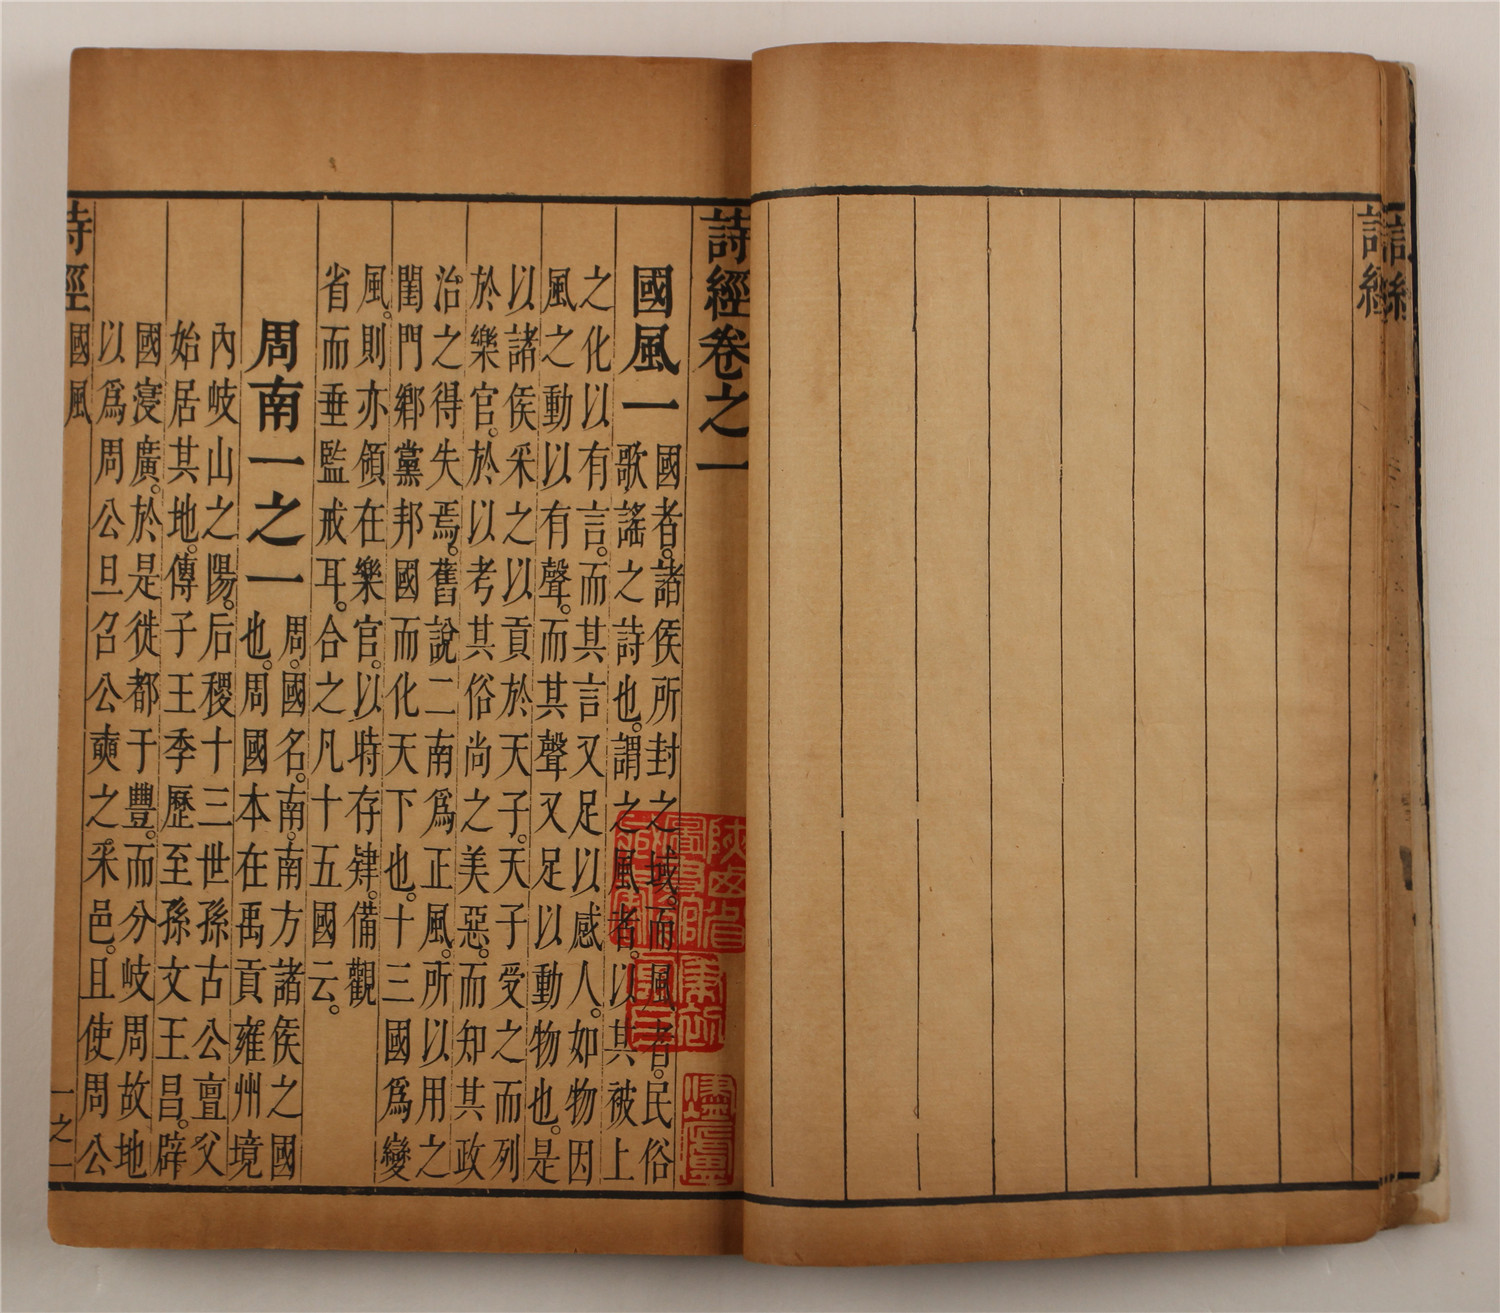 詩經
詩經
詩經卷之一
國風一
國者。諸侯所封之域。而風者。民俗
歌謠之詩也。謂之風者。以其被上
之化以有言。而其言又足以感人。如物因
風之動以有聲。而其聲又足以動物也。是
以諸侯采之以貢於天子。天子受之而列
於樂官。於以考其俗尚之美惡。而知其政
治之得失焉。舊說二南爲正風。所以用之
閨門鄉黨邦國而化天下也。十三國爲變
風。則亦領在樂官。以時存肄。備觀
省而垂監戒耳。合之凡十五國云。
周南一之一
周。國名。南。南方諸侯之國
也。周國本在禹貢雍州境
內岐山之陽。后稷十三世孫古公亶父
始居其地。傳子王季歷至孫文王昌。辟
國寖廣。於是徙都于豐。而分岐周故地
以爲周公旦召公奭之采邑。且使周公
詩經
國風
一之一
陝西省
圖書館